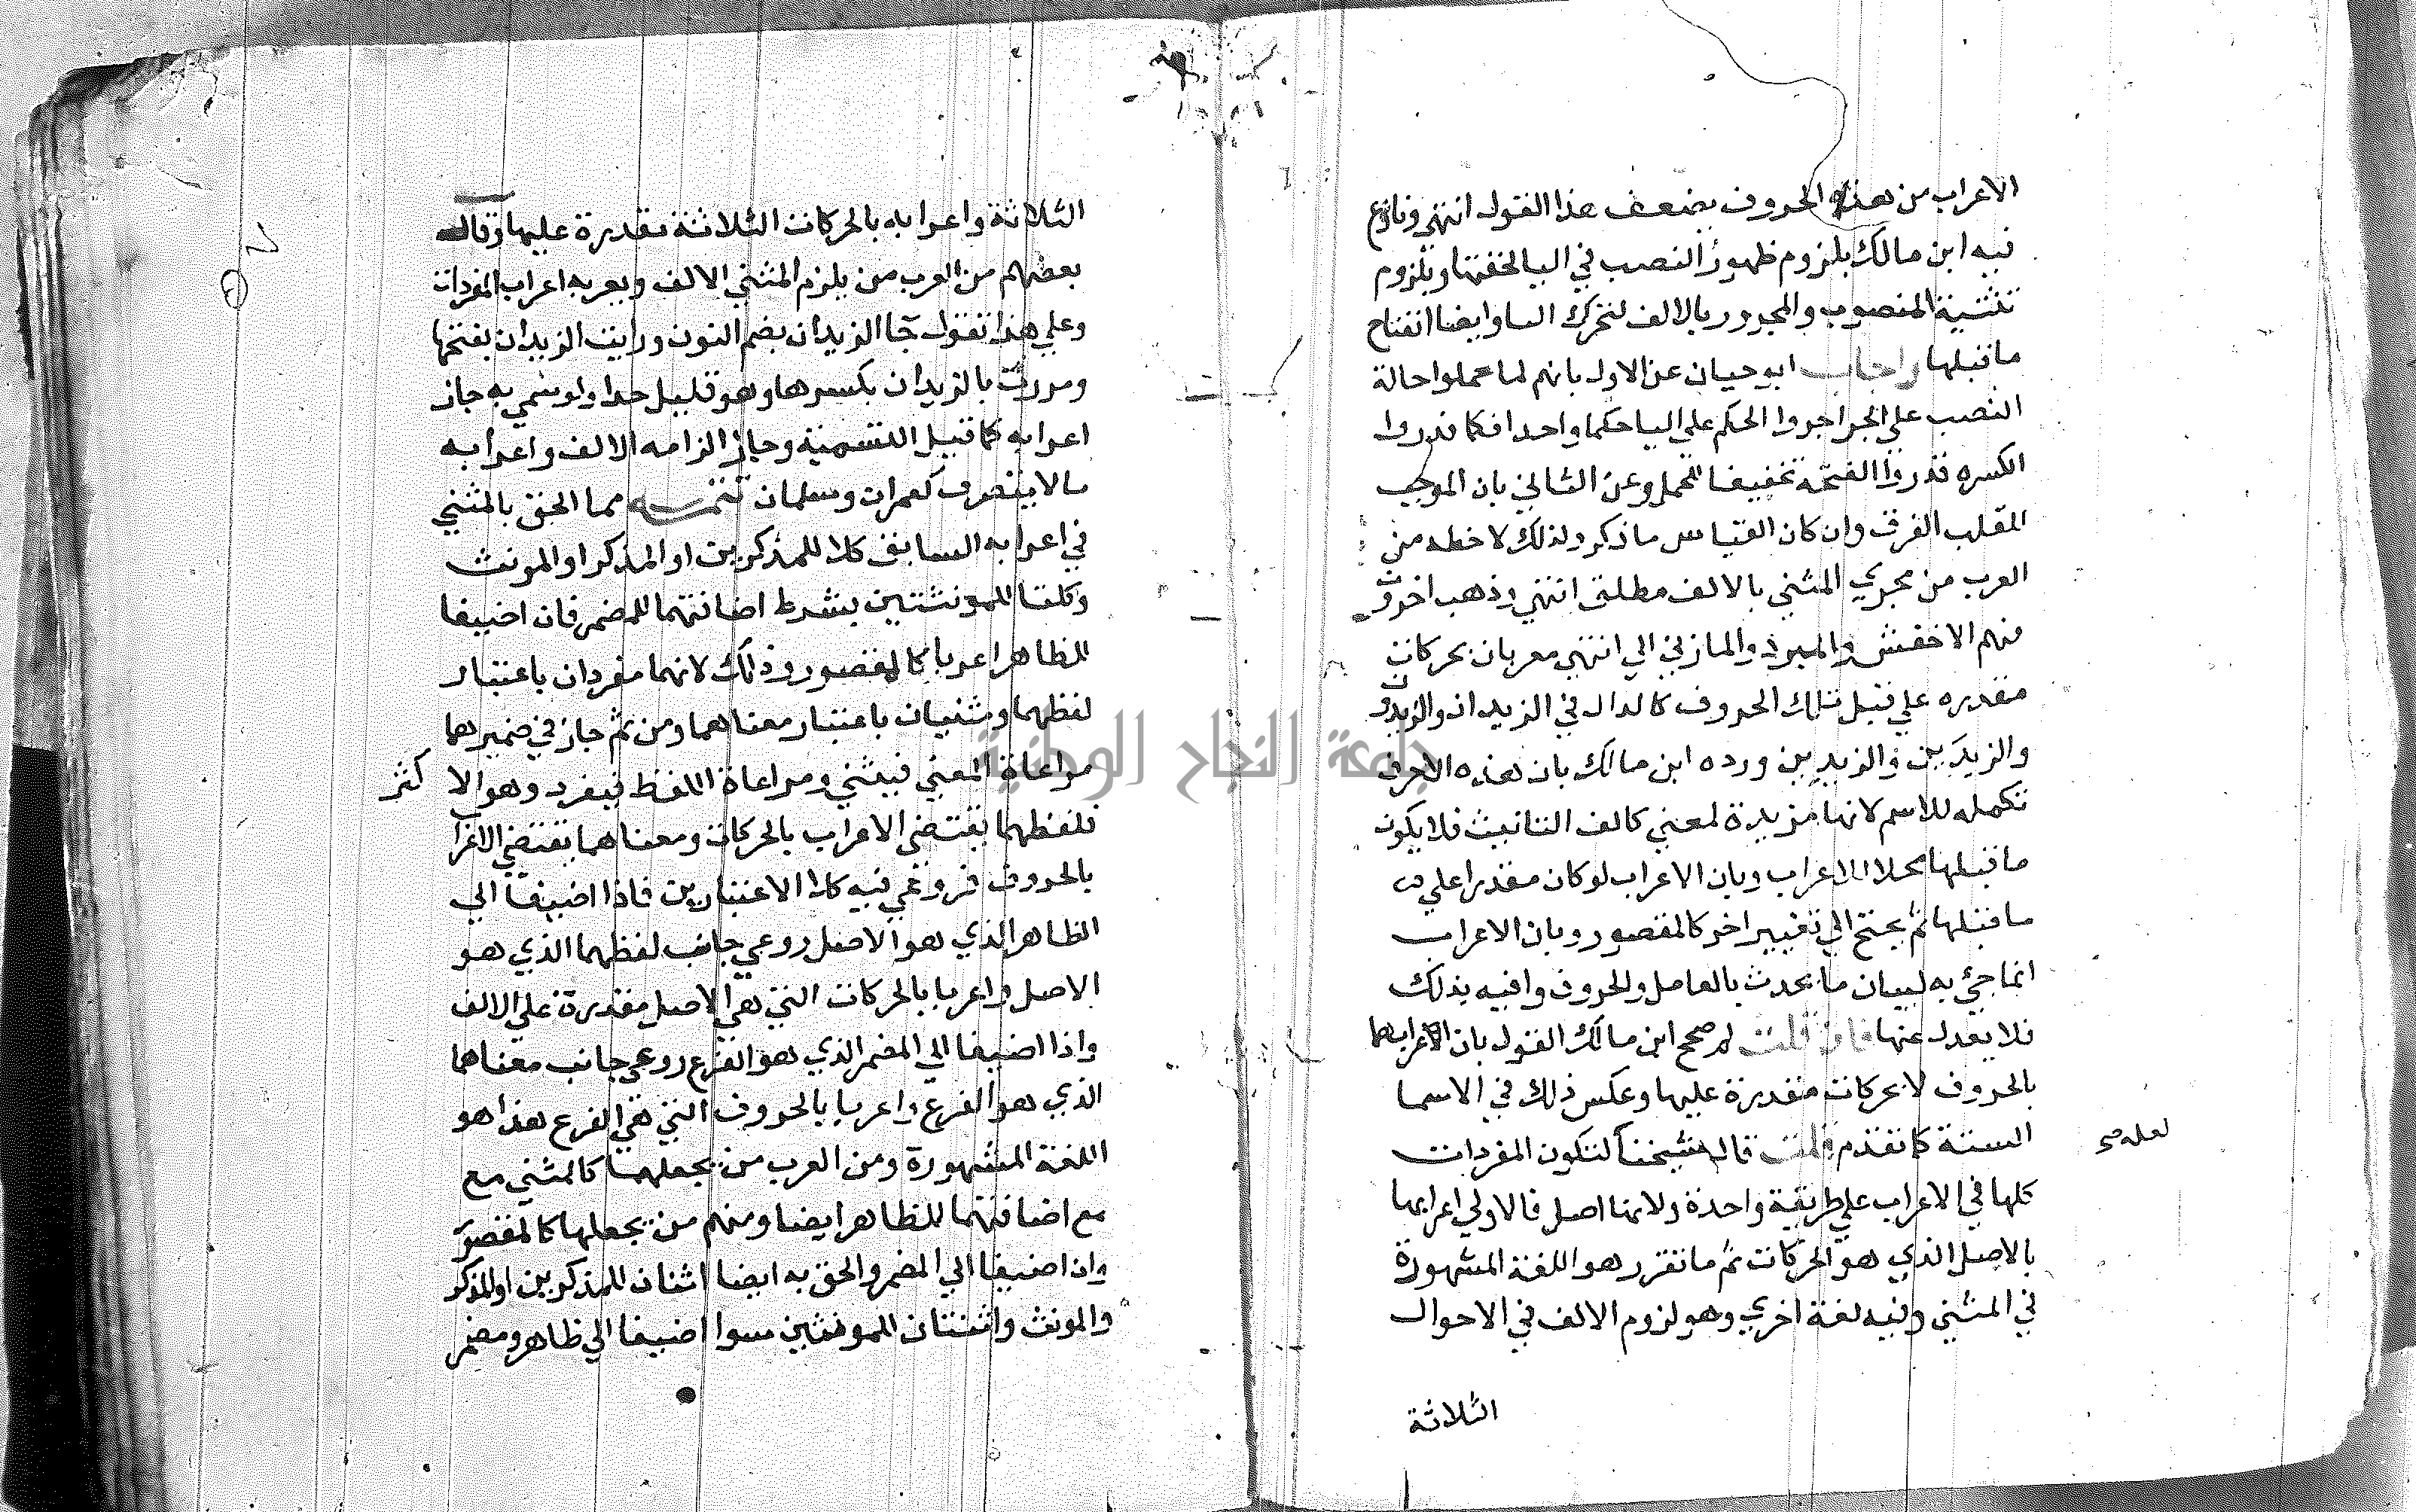 الاعراب من هذه الحروف يضعف هذا القول انتهي ونازع
فيه ابن مالك بلزوم ظهور النصب في اليا لخفتها وبلزوم
تثنية المنصوب والمجرور بالالف لتحرك اليا وايضا انفتاح
ما قبلها واجاب ابو حيان عن الاول بانهم لما حملوا حالة
النصب علي الجر اجروا الحكم علي اليا حكما واحدا فكما قدروا
الكسره قدروا الفتحه تخفيفا للحمل وعن الثاني بان الموجب
للقلب الفرق وان كان القياس ما ذكر ولذلك لاحظه من
العرب من يجري المثني بالالف مطلقا انتهي وذهب اخرون
منهم الاخفش والمبرد والمازني الي انتهي معربان بحركات
مقدره علي قبل تلك الحروف كالدال في الزيدان والزيدون
والزيدَين والزيدِين ورده ابن مالك بان هذه الاحرف
تكمله للاسم لانها مزيدة لمعني كالف التانيث فلا يكون
ما قبلها محلا للاعراب وبان الاعراب لو كان مقدرا علي
ما قبلها لم يحتج الي تغيير اخر كالمقصور وبان الاعراب
انما جيئ به لبيان ما يحدث بالعامل والحروف وافيه بذلك
فلا يعدل عنها فان قلت لم صحح ابن مالك القول بان اعرابهما
بالحروف لا بحركات مقدرة عليها وعكس ذلك في الاسما
الستة كما تقدم قلت قال شيخنا لتكون المفردات
كلها في الاعراب علي طريقة واحدة ولانها اصل فالاولي اعرابها
بالاصل الذي هو الحركات ثم ما تقرر هو اللغة المشهورة
في المثني وفيه لغة اخري وهو لزوم الالف في الاحوال
الثلاثة
لعله صح
الثلاثة واعرابه بالحركات الثلاثة مقدرة عليها وقال
بعضهم من العرب من يلزم المثني الالف ويعربه اعراب المفردات
وعلي هذا تقول جا الزيدان بضم النون ورايت الزيدان بفتحها
ومررت بالزيدان بكسرها وهو قليل جدا ولو سمي به جاز
اعرابه كما قبل التسمية وجاز الزامه الالف واعرابه
ما لا ينصرف كعمران وسلمان تتمــه مما الحق بالمثني
في اعرابه السابق كلا للمذكرين او المذكر او المونث
وكلتا للمونثتين بشرط اضافتهما للمضمر فان اضيفا
للظاهر اعربا كالمقصور وذلك لانهما مفردان باعتبار
لفظهما ومثنيان باعتبار معناهما ومن ثم جاز في ضميرهما
مراعاة المعني فيثني ومراعاة اللفظ فيفرد وهو الا كثر
فلفظهما يقتضي الاعراب بالحركات ومعناهما يقتضي الاعراب
بالحروف فروعي فيه كلا الاعتبارين فاذا اضيفا الي
الظاهر الذي هو الاصل روعي جانب لفظهما الذي هو
الاصل واعربا بالحركات التي هي الاصل مقدرة علي الالف
واذا اضيفا الي المضمر الذي هو الفرع روعي جانب معناهما
الذي هو الفرع واعربا بالحروف التي هي الفرع هذا هو
اللغة المشهورة ومن العرب من يجعلهما كالمثني مع
مع اضافتهما للظاهر ايضا ومنهم من يجعلها كالمقصور
وان اضيفا الي المضمر والحق به ايضا اثنان للمذكرين او للمذكر
والمونث واثنتان للمونثتين سوا اضيفا الي ظاهر ومضمر
جامعة النجاح الوطنية